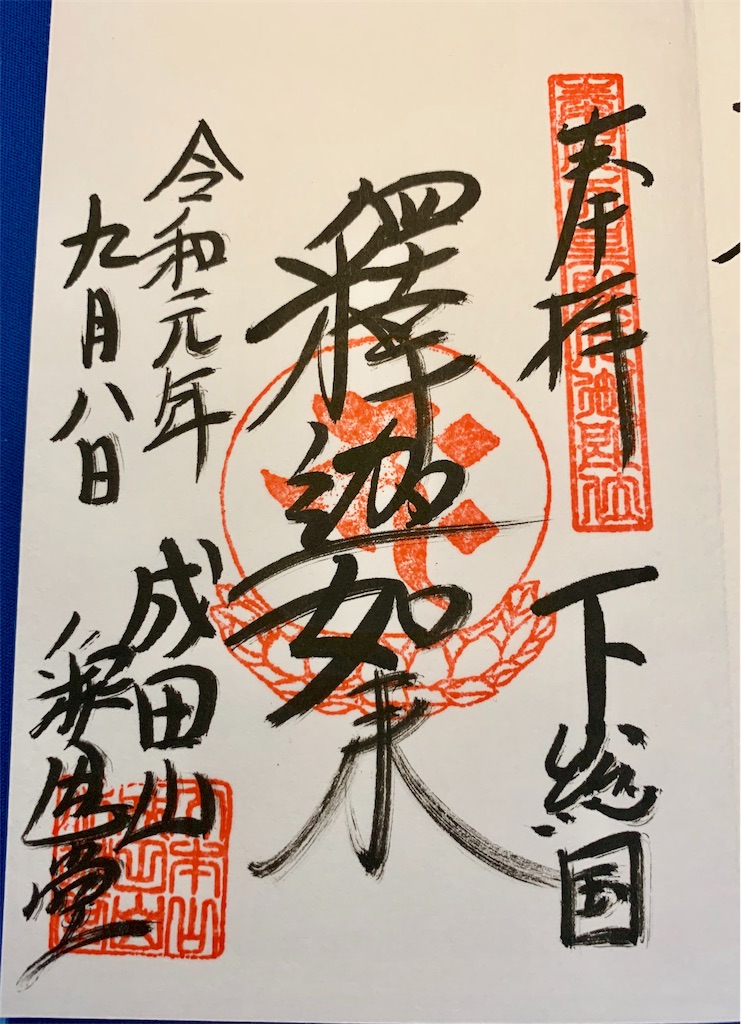 奉拝
下総国
釋迦如来
令和元年
九月八日
成田山
釈迦堂